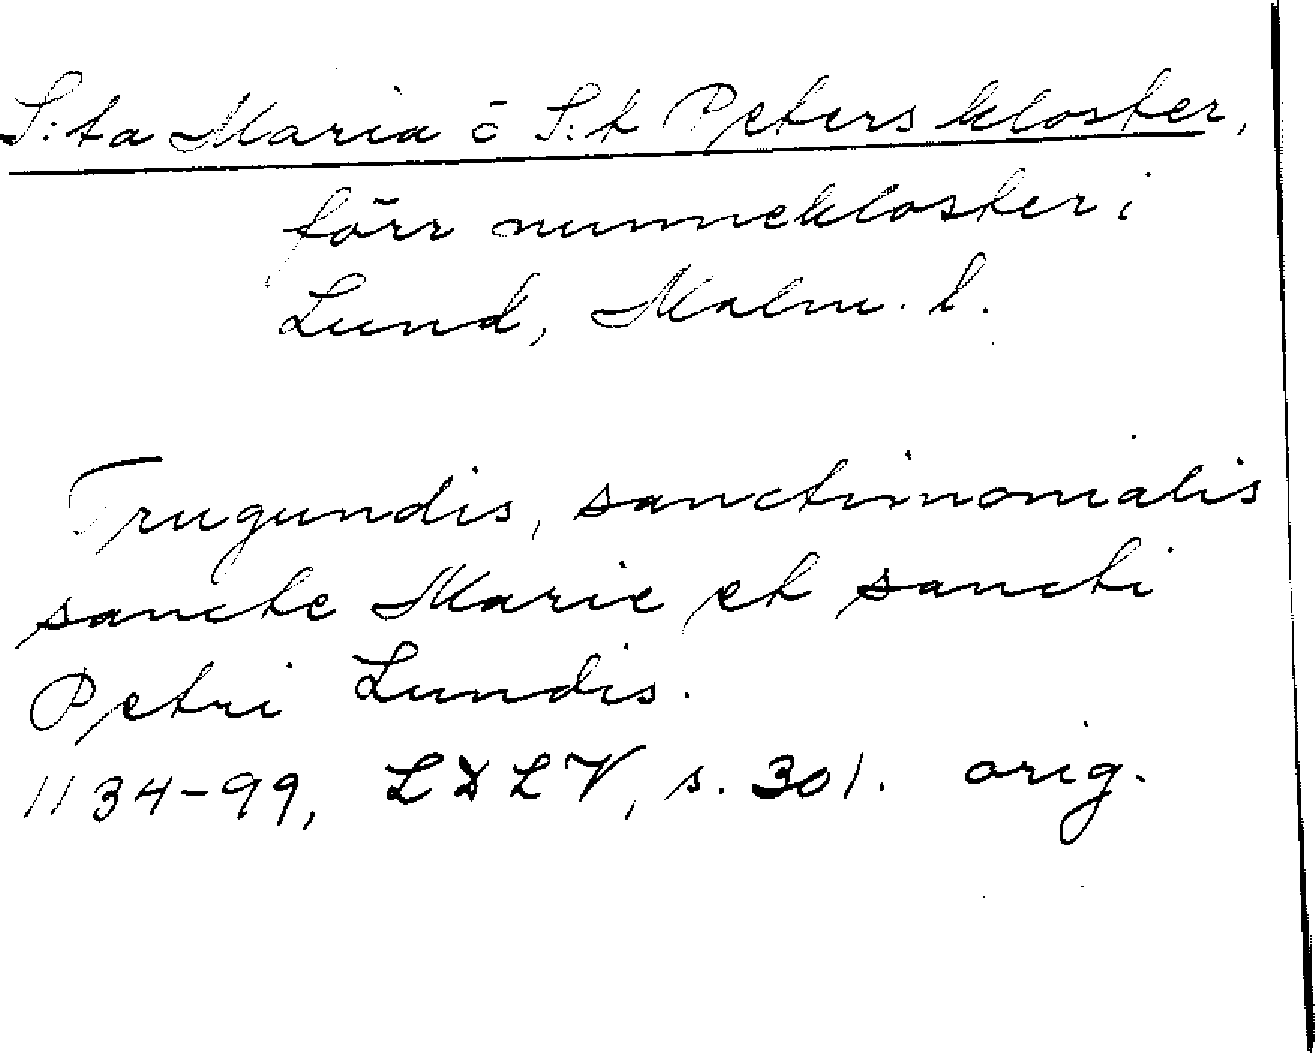 S:ta Maria o S:t Peters kloster,
förr nunnekloster i
Lund, Malm. l.
Trugundis, sanctimonialis
sancte Marie et sancti
Petri Lundis.
1134-99, LDLV, s. 301. orig.